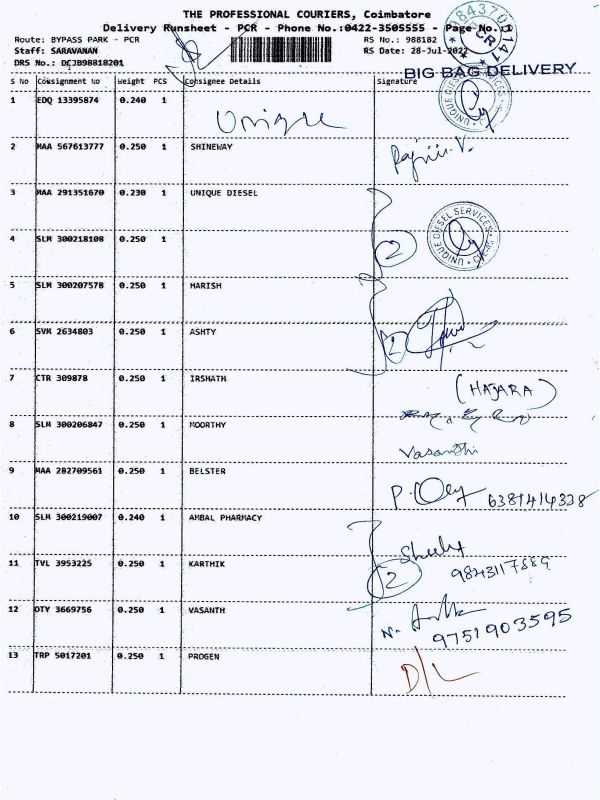 THE PROFESSIONAL COURIERS, Coimbatore
Delivery Runsheet - PCR - Phone No.:0422-3505555 - Page No.:
Route: BYPASS PARK - PCR RS No.: 988182
Staff: SARAVANAN RS Date: 28-Jul-2022
DRS No.: DCJB98818201
BIG BAG DELIVERY
S No Consignment No Weight PCS Consignee Details Signature
1 EDQ 13395874 0.240 1 Unique
UNIQUE DIESEL SERVICES
2 MAA 567613777 0.250 1 SHINEWAY
3 MAA 291351670 0.230 1 UNIQUE DIESEL
UNIQUE DIESEL SERVICES
4 SLM 300218108 0.250 1 2
5 SLM 300207578 0.250 1 HARISH
6 SVM 2634803 0.250 1 ASHTY 2
7 CTR 309878 0.250 1 IRSHATH (HAJARA)
8 SLM 300206847 0.250 1 MOORTHY
Vasanthi
9 MAA 282709561 0.250 1 BELSTER 6381414338
10 SLM 300219007 0.240 1 AMBAL PHARMACY
11 TVL 3953225 0.250 1 KARTHIK 2
12 OTY 3669756 0.250 1 VASANTH 9751903595
13 TRP 5017201 0.250 1 PROGEN D/L